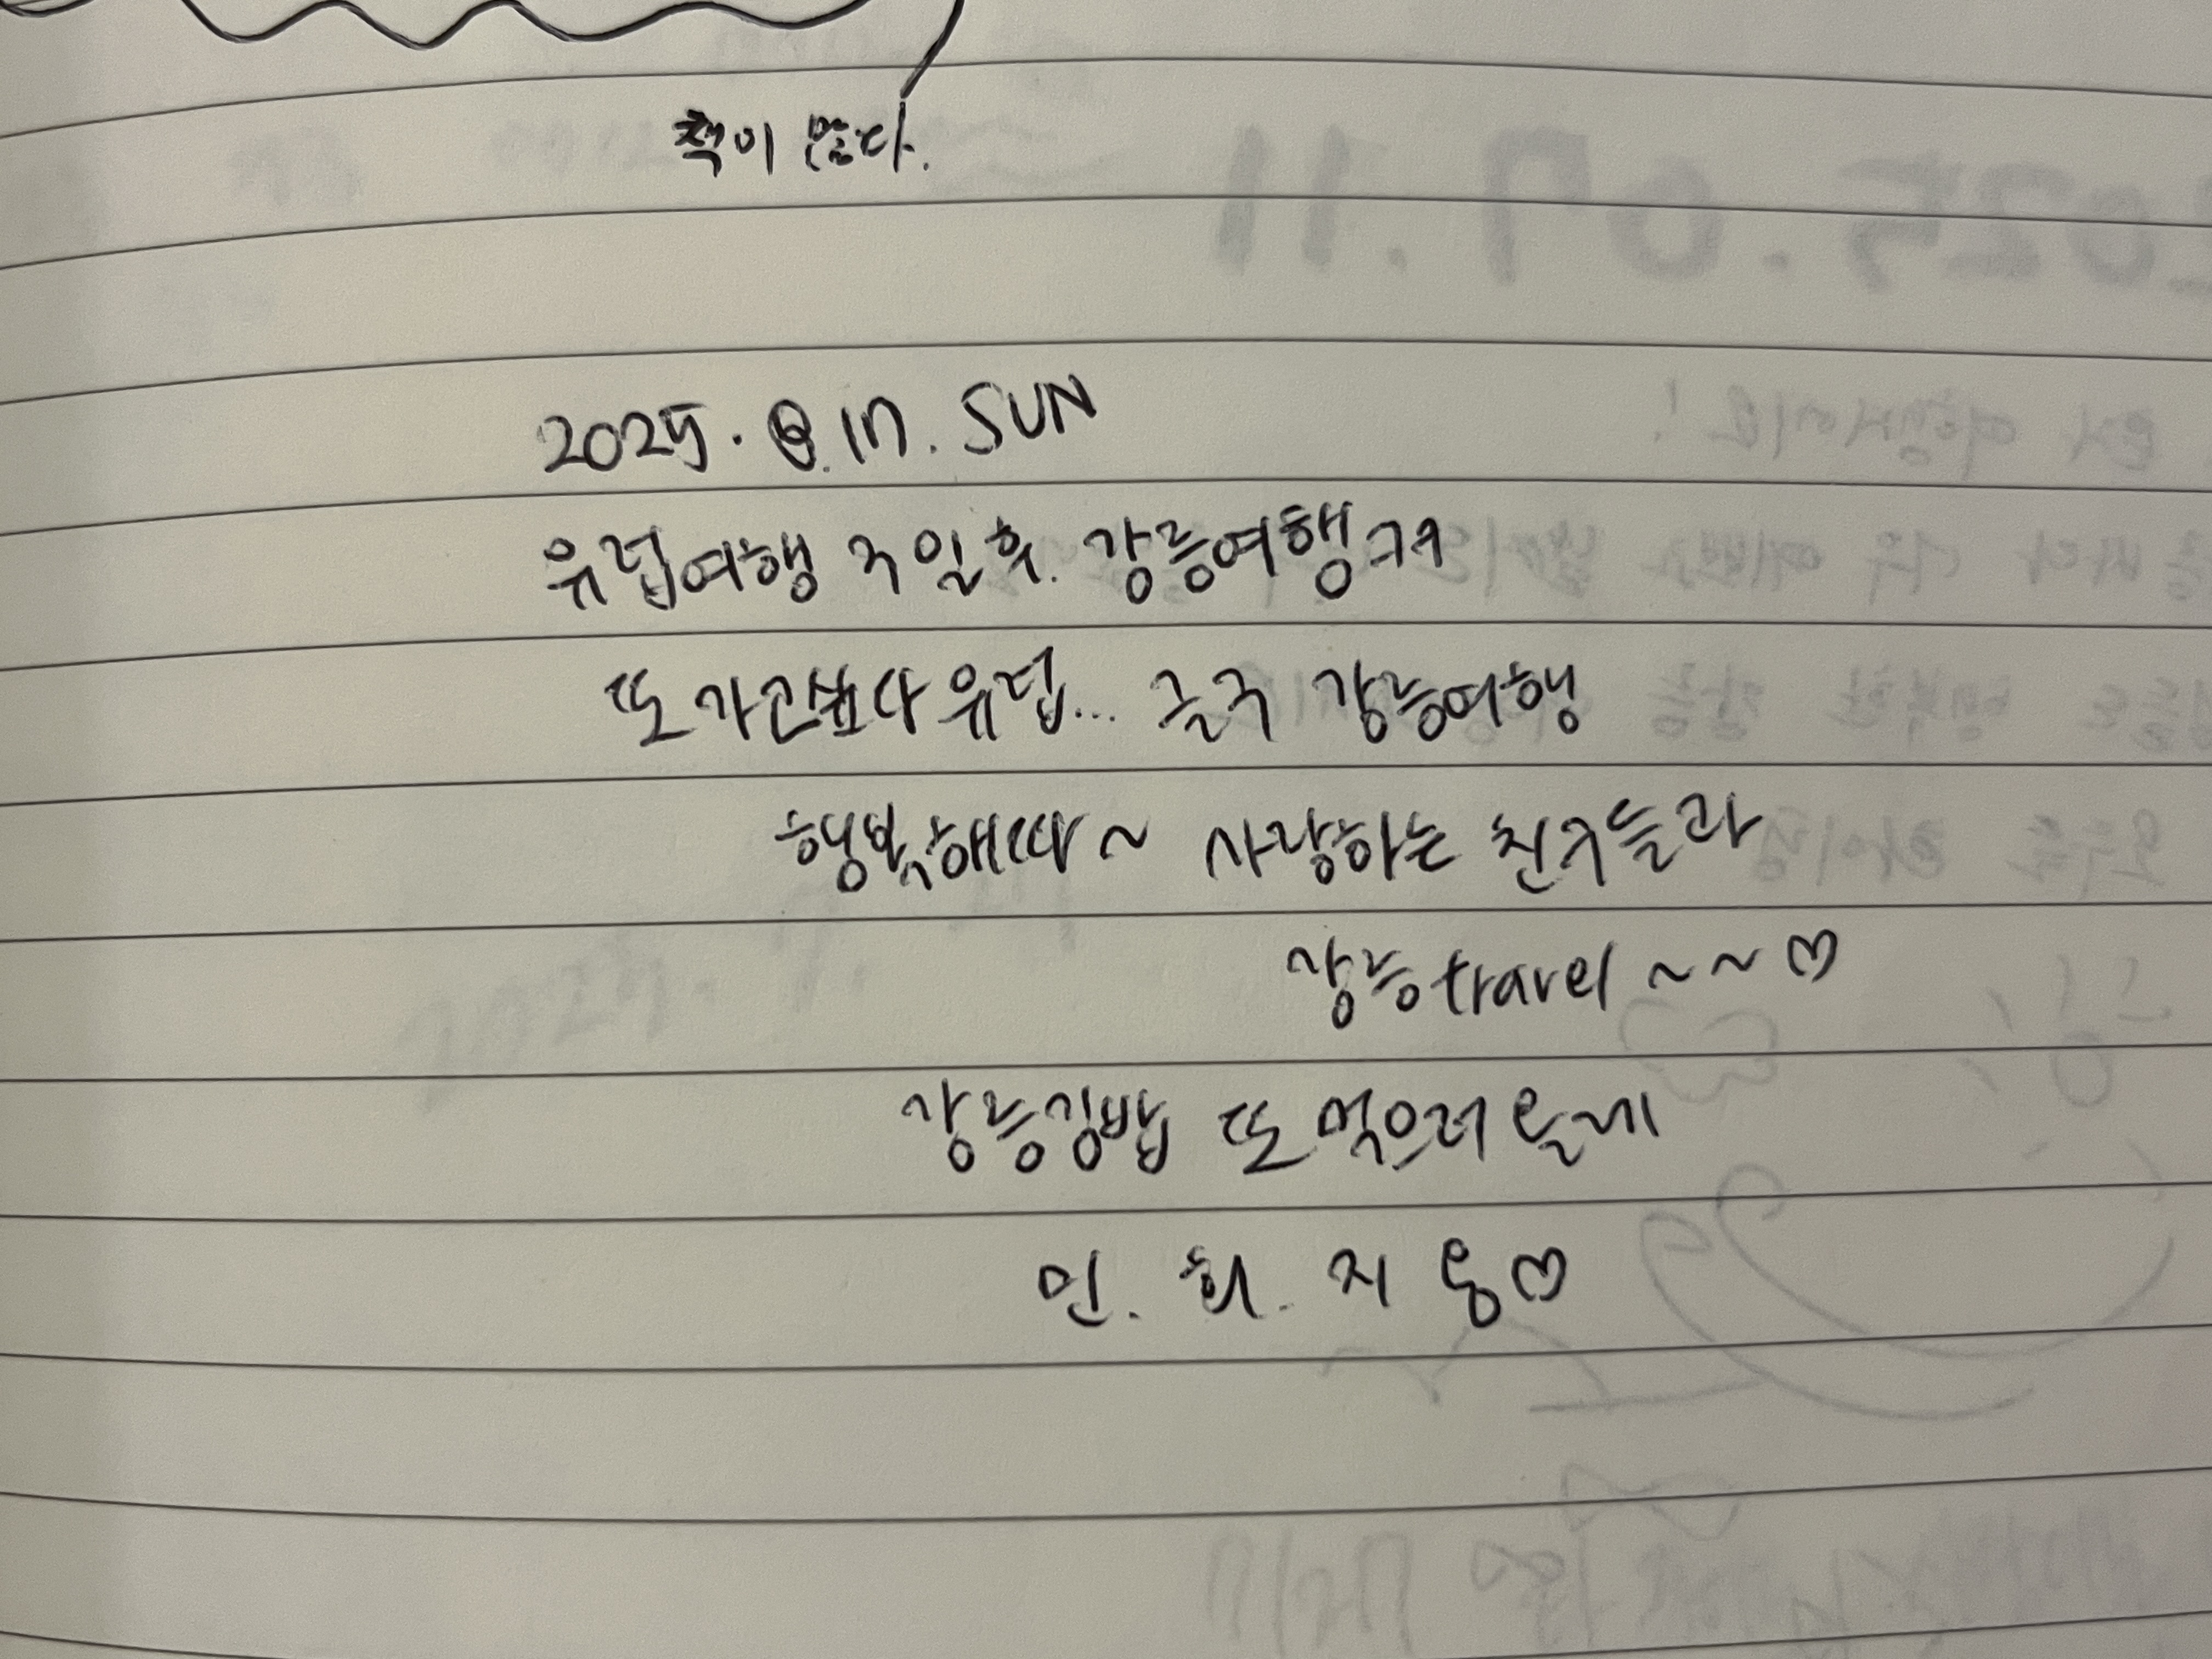 책이 많다.
2025. 8. 17. SUN
유럽여행 3일 후. 강릉여행ㅋㅋ
또 가고싶다 유럽... 결국 강릉여행
행복해따~ 사랑하는 친구들과
강릉travel~~♡
강릉김밥 또 먹으러 올게
인. 희. 지 용♡